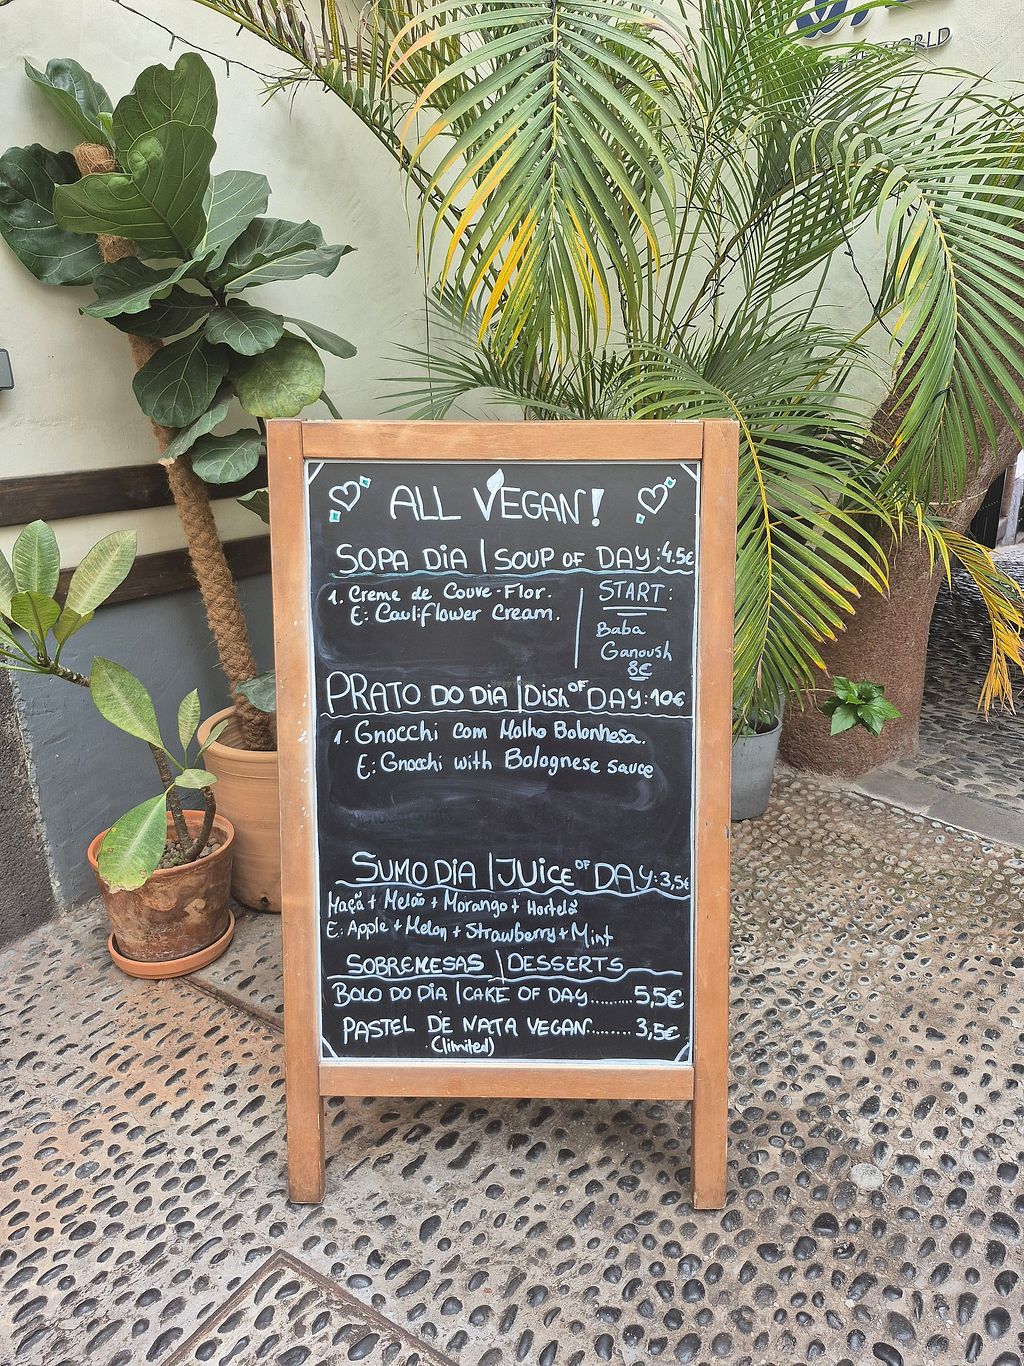 WORLD
ALL VEGAN!
SOPA DIA | SOUP OF DAY: 4.5€
1. Creme de Couve-Flor.
E: Cauliflower Cream.
START:
Baba
Ganoush
8€
PRATO DO DIA | DISH OF DAY: 10€
1. Gnocchi com Molho Bolonhesa.
E: Gnocchi with Bolognese sauce
SUMO DIA | JUICE OF DAY: 3,5€
Maçã + Melão + Morango + Hortelã
E: Apple + Melon + Strawberry + Mint
SOBREMESAS | DESSERTS
BOLO DO DIA | CAKE OF DAY.........5,5€
PASTEL DE NATA VEGAN........ 3,5€
(limited)